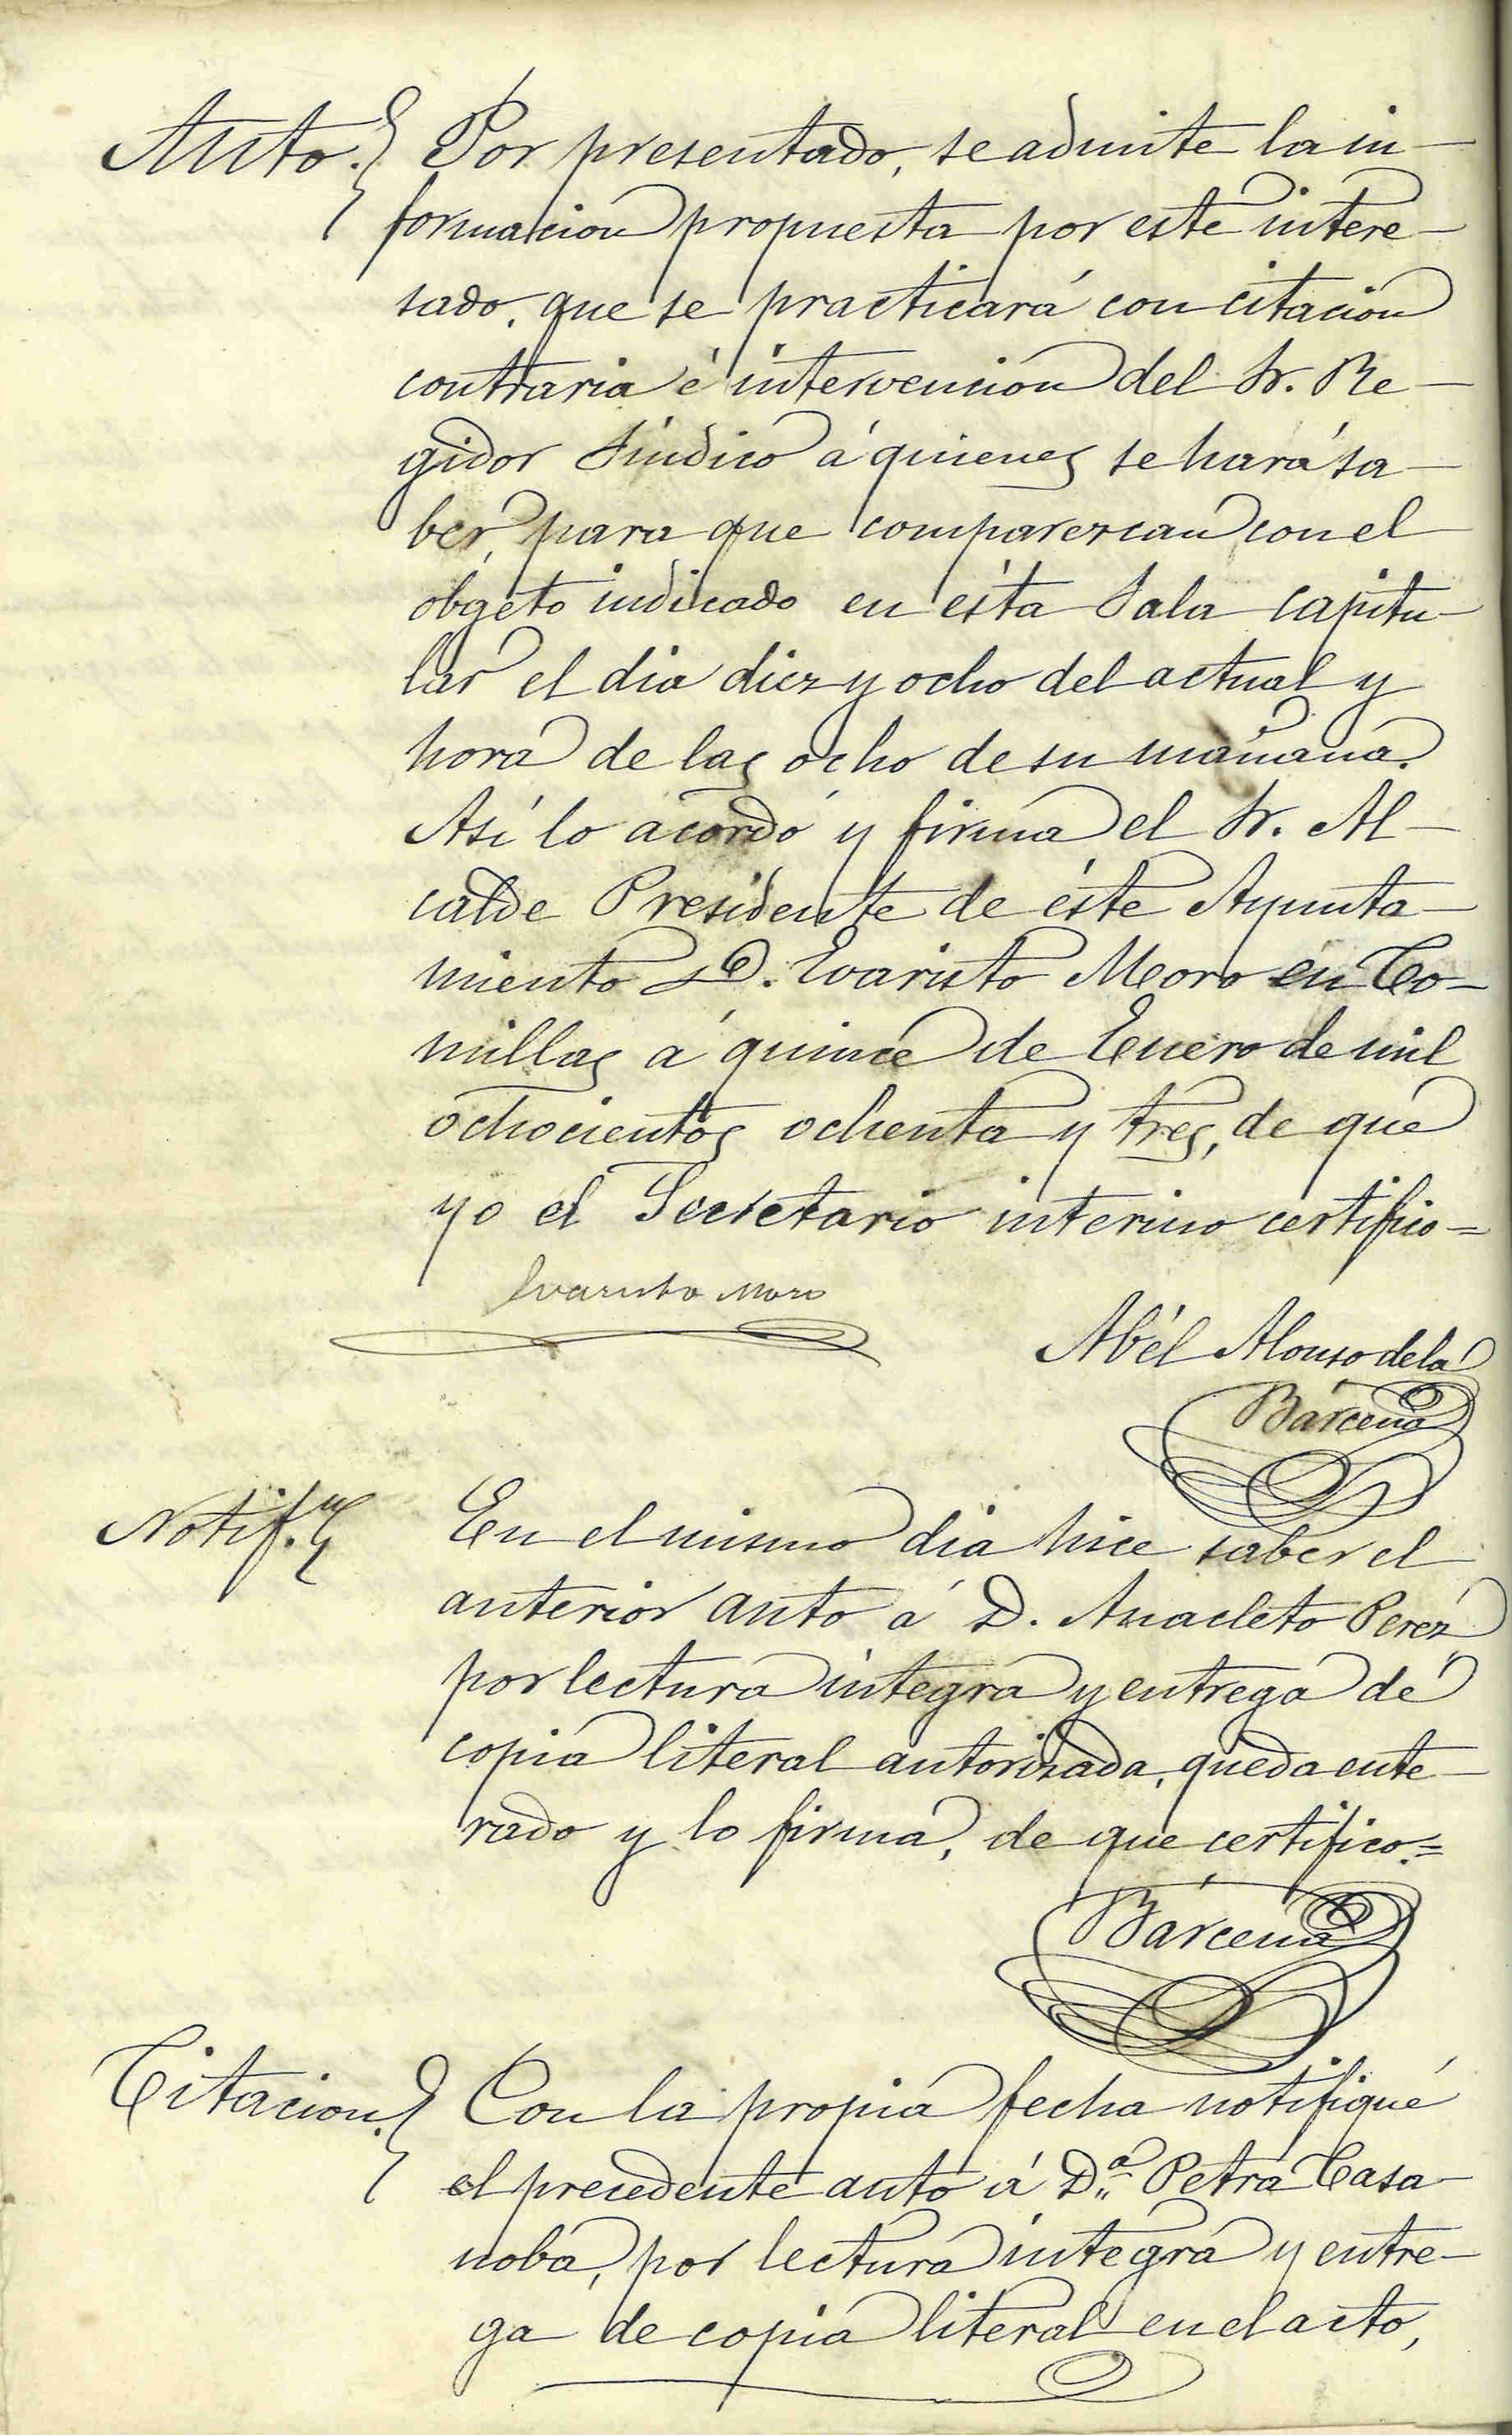 Auto. Por presentado, se admite la in-
formacion propuesta por este intere-
sado, que se practicará con citacion
contraria é intervencion del Sr. Re-
gidor Síndico á quienes se hará sa-
ber, para que comparezcan con el
objeto indicado en ésta Sala capitu-
lar el dia diez y ocho del actual y
hora de las ocho de su mañana.
Así lo acordó y firma el Sr. Al-
calde Presidente de éste Ayunta-
miento D. Evaristo Moro en Co-
millas á quince de Enero de mil
ochocientos ochenta y tres, de que
yo el Secretario interino certifico=
Evaristo Moro
Abél Alonso de la
Bárcena
Notif.n En el mismo dia hice saber el
anterior auto á D. Anacleto Perez
por lectura integra y entrega de
copia literal autorizada, queda ente-
rado y lo firma, de que certifico.=
Bárcena
Citacion. Con la propia fecha notifiqué
el precedente auto á D.ª Petra Casa-
noba, por lectura integra y entre-
ga de copia literal en el acto,